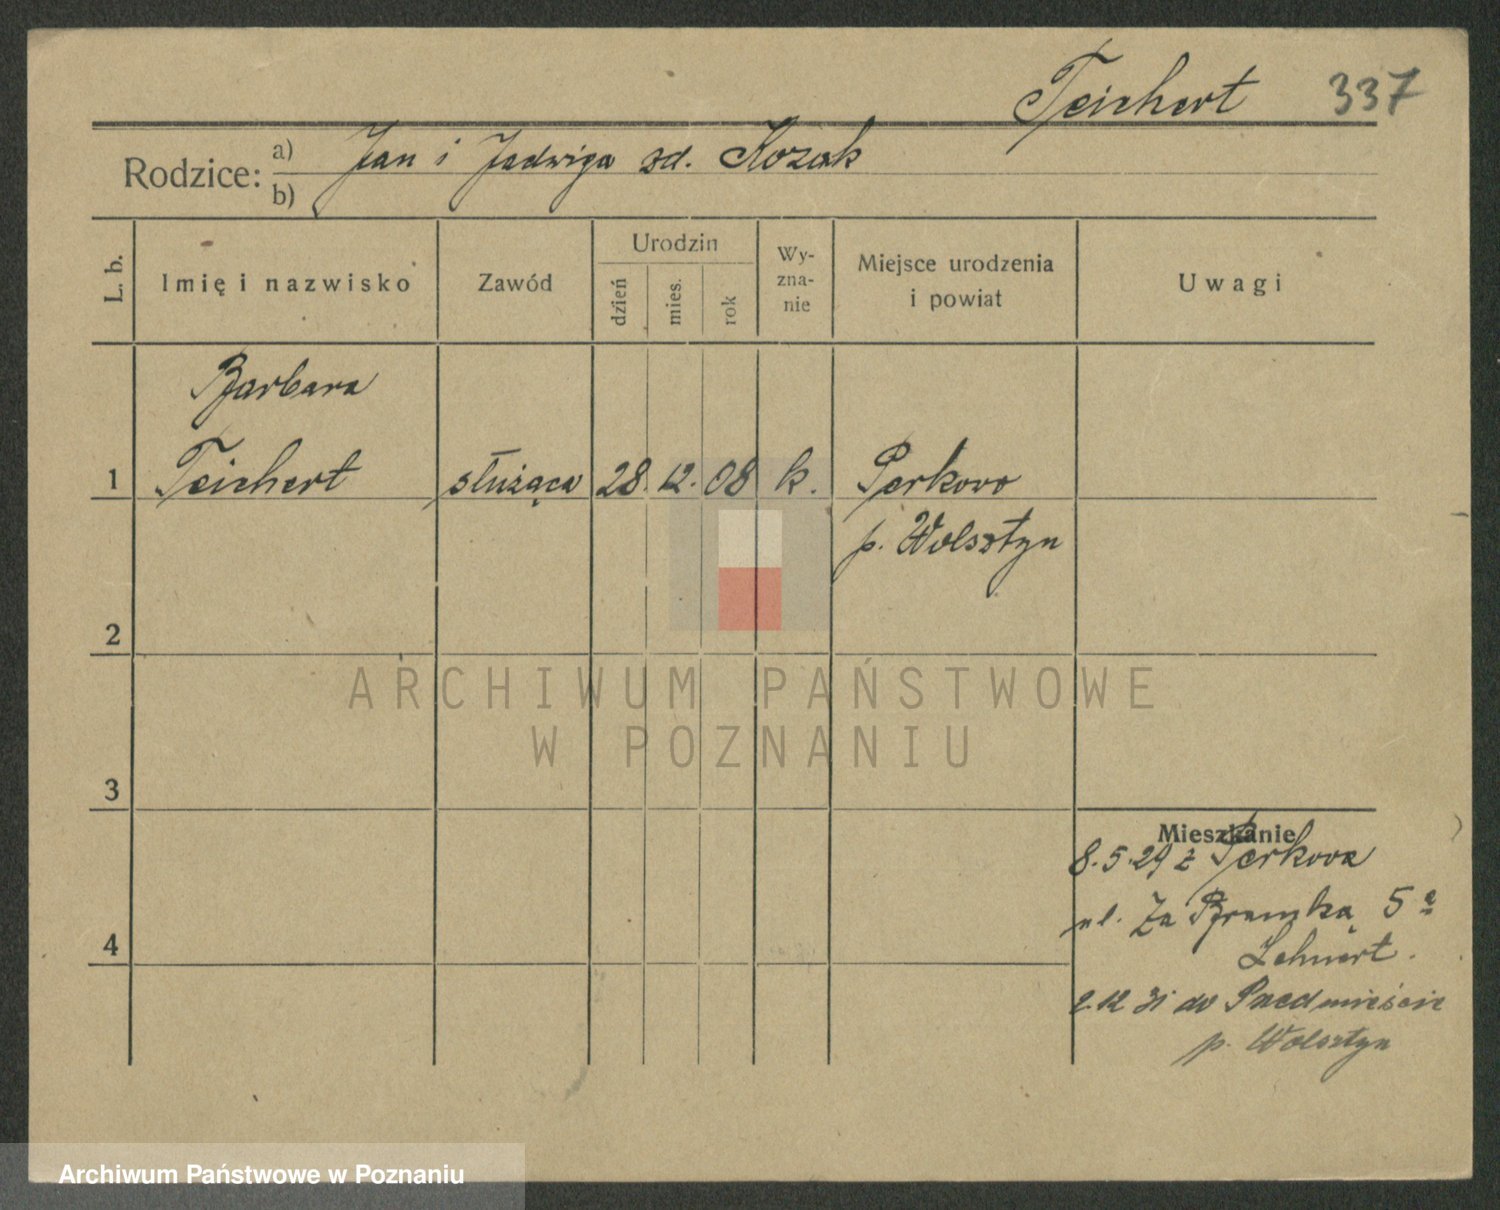 Teichert 337
Rodzice: a) Jan i Jadwiga zd. Kozak
b)
L. b. Imię i nazwisko Zawód Urodzin dzień mies. rok Wy-zna-nie Miejsce urodzenia i powiat Uwagi
Barbara
1 Teichert służąca 28. 12. 08 k. Perkowo
p. Wolsztyn
2
ARCHIWUM PAŃSTWOWE
W POZNANIU
3
Mieszkanie
8.5.29 z Perkowa
ul. Za Bramką 5a
Lehnert.
4
2.12 31 do Przedmieście
p. Wolsztyn
Archiwum Państwowe w Poznaniu